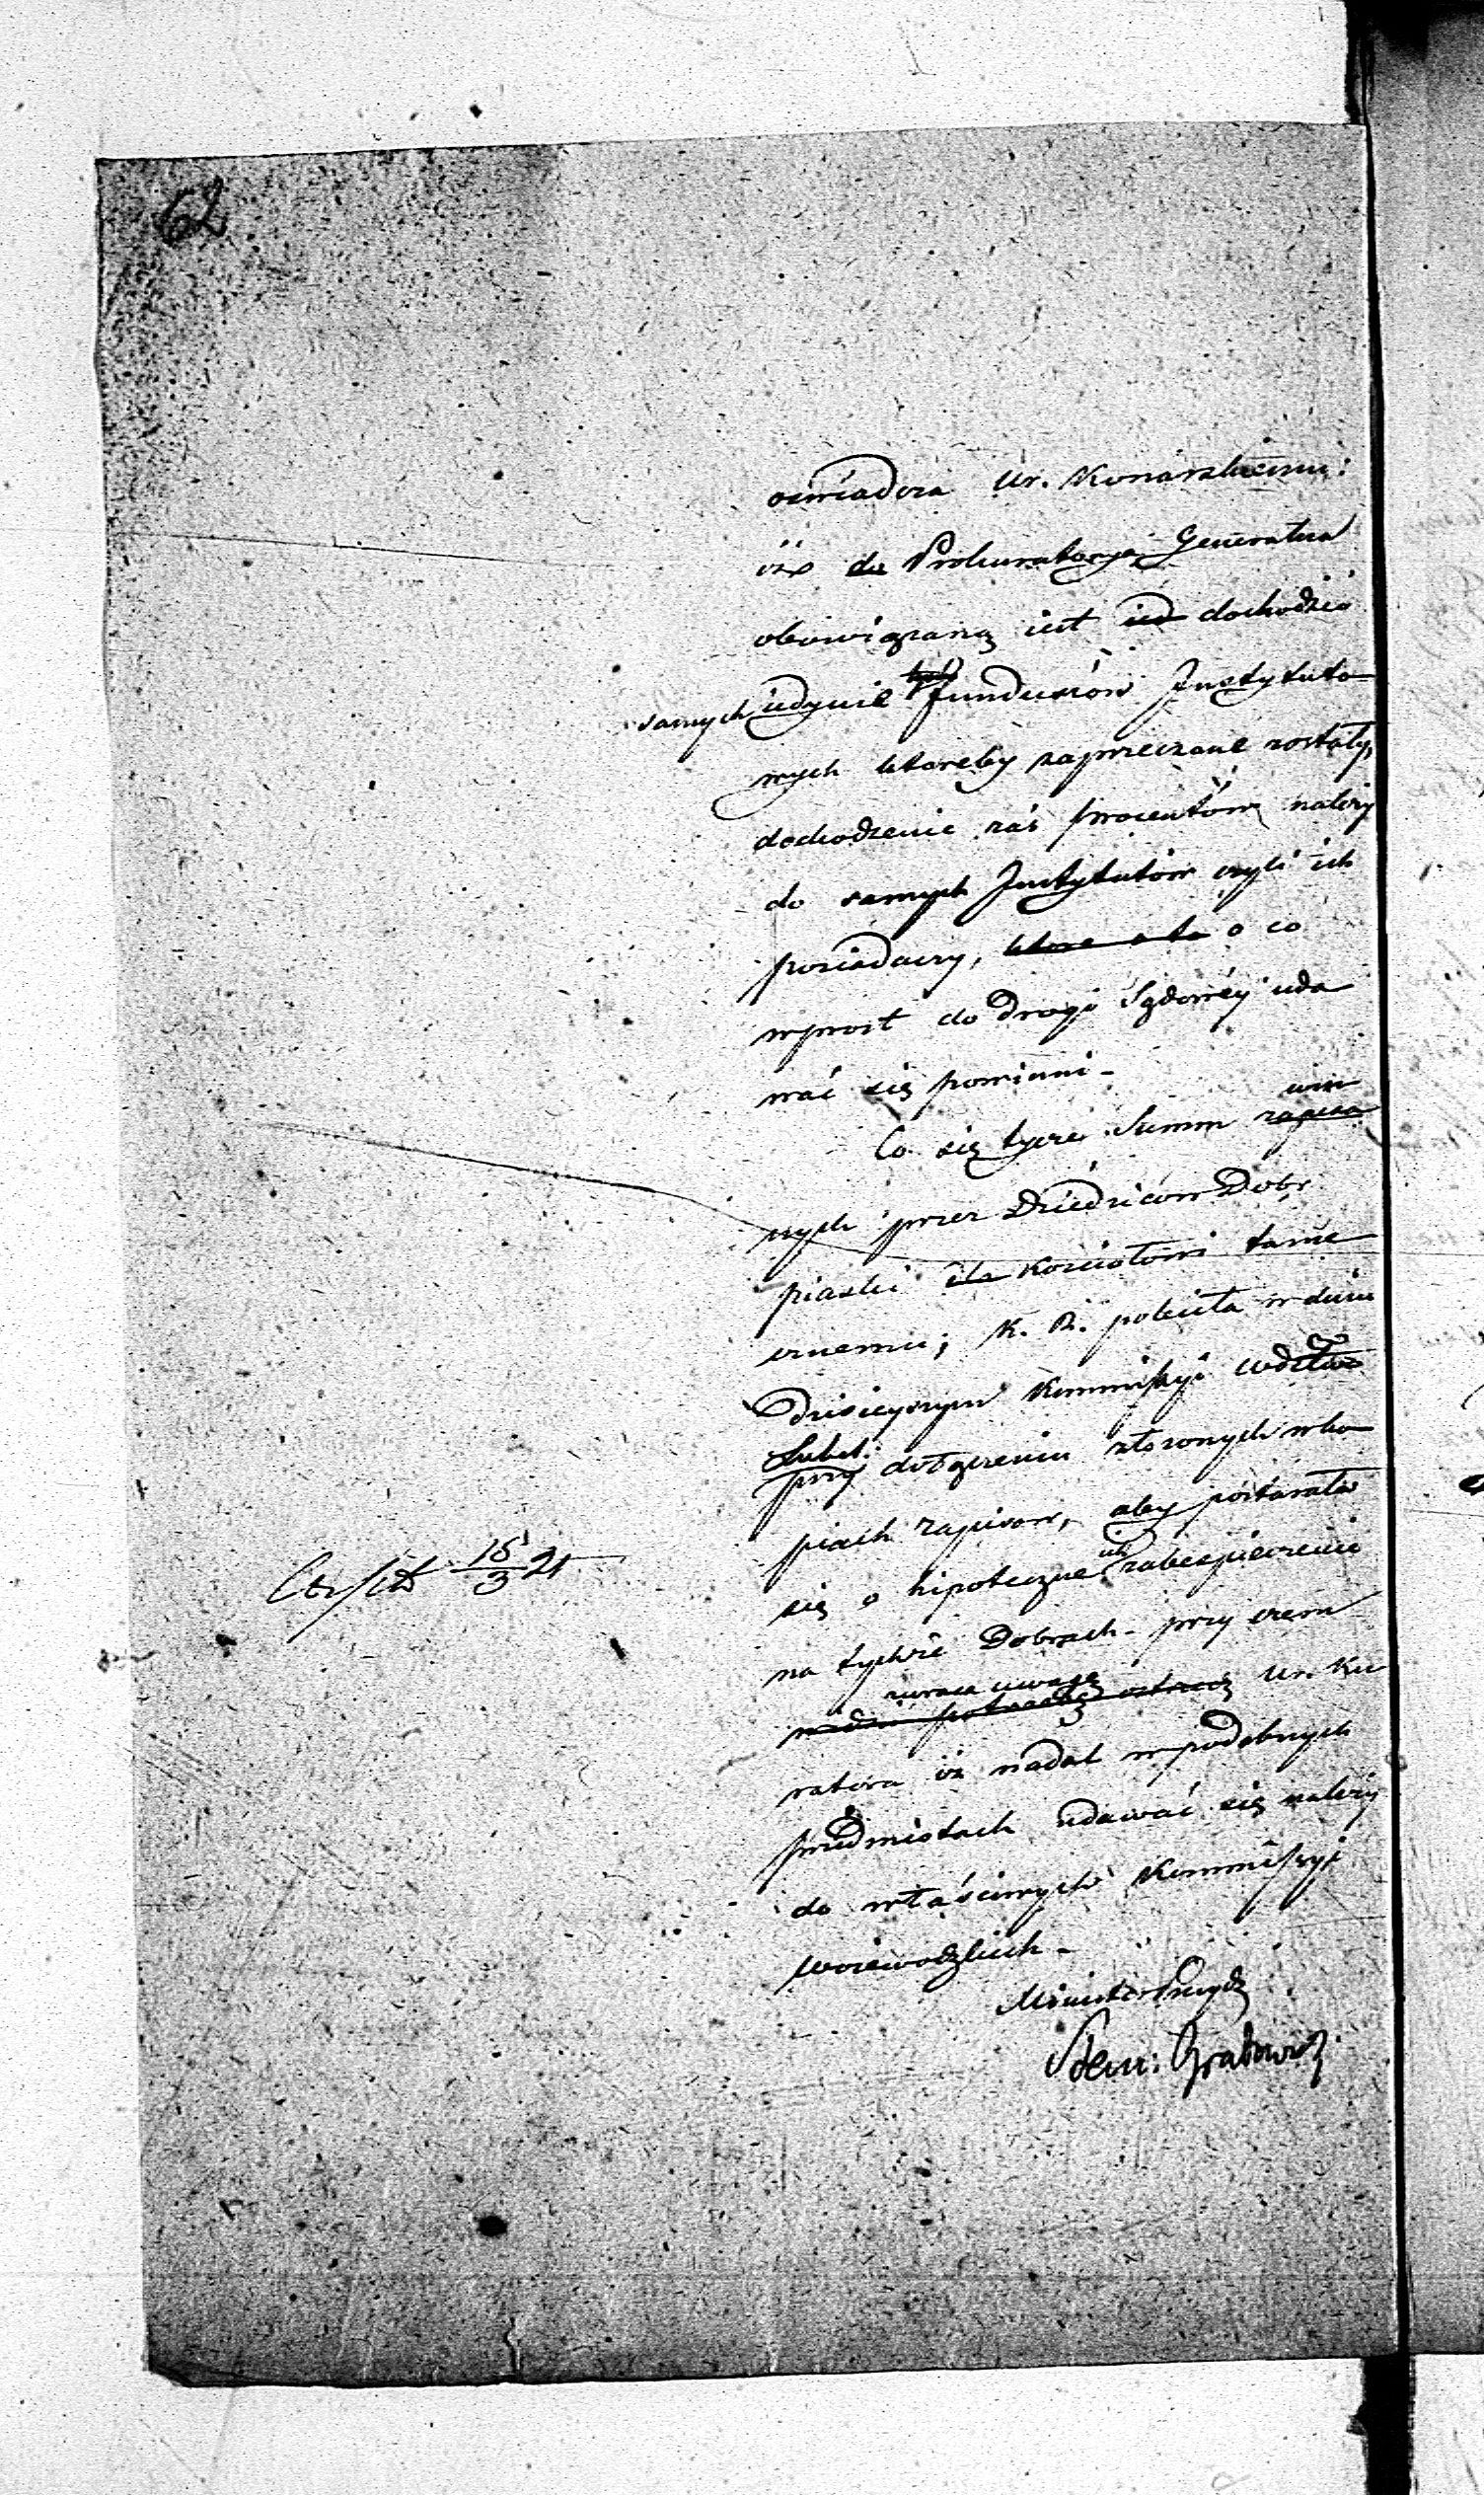 62
oswiadcza Ur. Konarskiemu:
iż do Prokuratorya Generalna
obowiązaną iest dochodzić
samych iedynie funduszów Instytuto
wych ktoreby zaprzeczane zostały,
dochodzenie zaś procentów należy
do samych Instytutów czyli ich
posiadaczy, ktore o to o co
wprost do drogi Sądowéy uda
wać się powinni -
Co się tycze Summ zapisa
nych przez Dziedziców Dobr
piaski dla Kościołowi tame
cznemu; K. R. poleciła w dniu
Dzisieyszym Kommissyi Wdztwa
Lubel:
przy dołączeniu złożonych w ko
piach zapisow, aby postarała
się o hipoteczne ich zabezpieczenie
na tychże Dobrach - przy czem
zwraca uwagę
Ur. Ku
ratora iż nadal w podobnych
przedmiotach udawać się należy
do właściwych Kommissyi
Woiewodzkich -
Minister Prezyd
Stan: Grabowski
15/3 21